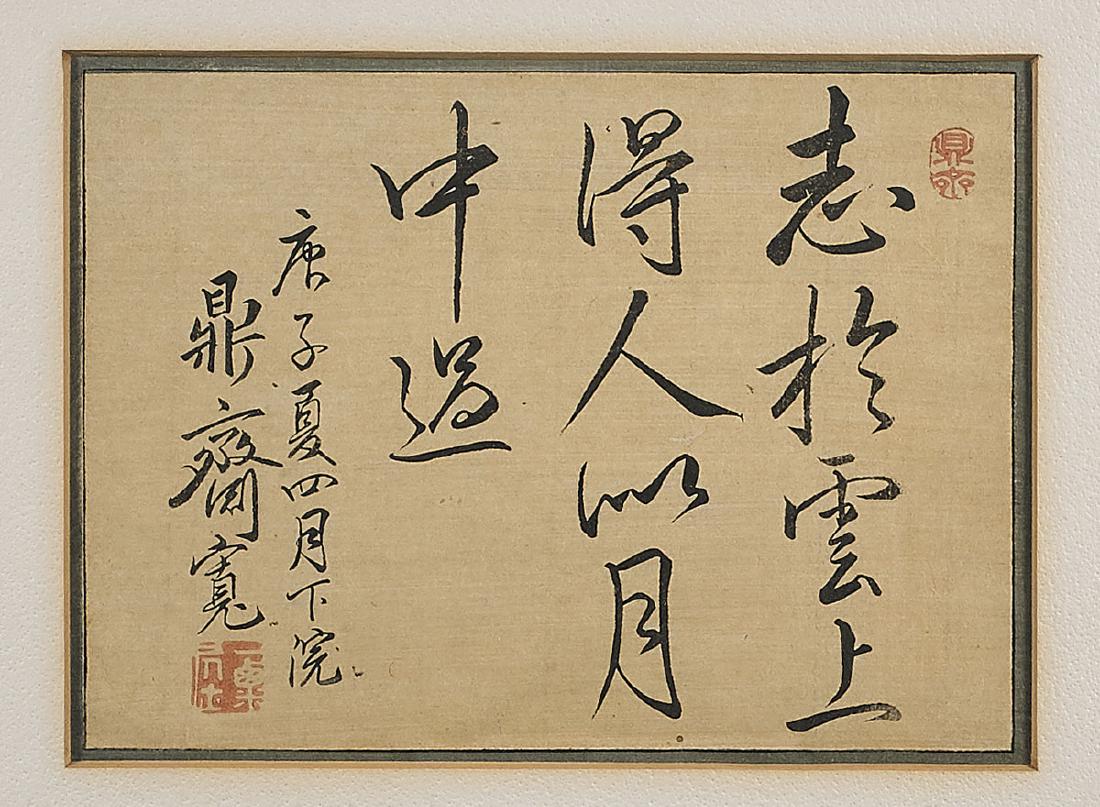 志於雲上
得人似月
中過
庚子夏四月下浣
鼎齋寬